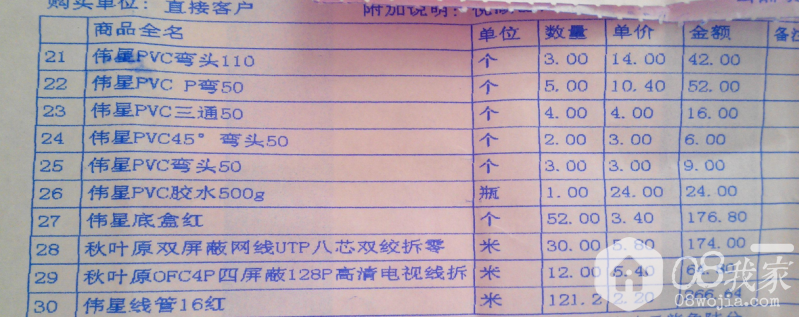 购买单位: 直接客户 附加说明:
商品全名 单位 数量 单价 金额 备注
21 伟星PVC弯头110 个 3.00 14.00 42.00
22 伟星PVC P弯50 个 5.00 10.40 52.00
23 伟星PVC三通50 个 4.00 4.00 16.00
24 伟星PVC45°弯头50 个 2.00 3.00 6.00
25 伟星PVC弯头50 个 3.00 3.00 9.00
26 伟星PVC胶水500g 瓶 1.00 24.00 24.00
27 伟星底盒红 个 52.00 3.40 176.80
28 秋叶原双屏蔽网线UTP八芯双绞拆零 米 30.00 5.80 174.00
29 秋叶原OFC4P四屏蔽128P高清电视线拆 米 12.00 5.40
30 伟星线管16红 米 121.2 2.20
08我家
08wojia.com